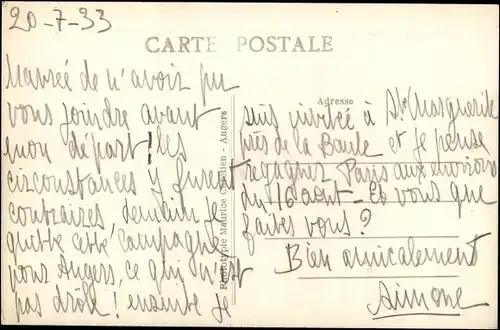 20-7-33
CARTE POSTALE
Navrée de n'avoir pu
vous joindre avant
mon départ ! les
circonstances y furent
contraires, demain je
quitte cette campagne
pour Angers, ce qui n'est
pas drôle ! ensuite je
Phototypie Maurice - Angers
Adresse
suis invitée à Ste Marguerite
près de la Baule et je pense
regagner Paris aux environs
du 16 août - Et vous que
faites vous ?
Bien amicalement
Aimone